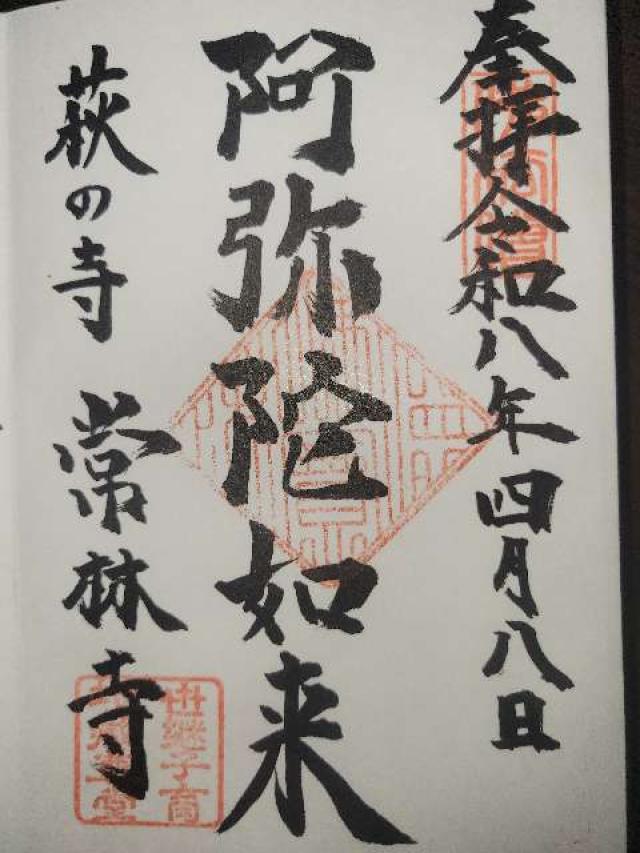 奉拝 令和八年四月八日
阿弥陀如来
萩の寺 常林寺
世継子育